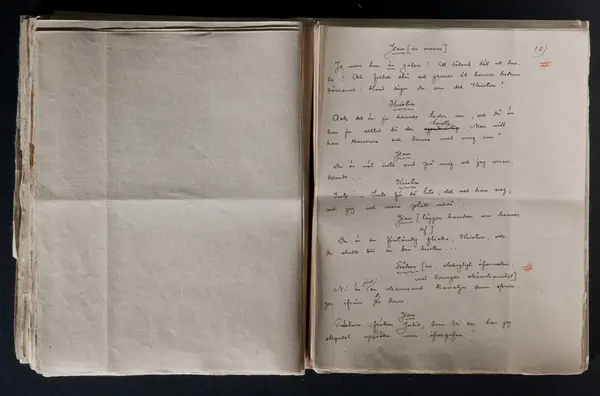 Jean [är ensam] 10)
Ja, men hon är galen! Ett sådant sätt att dan-
sa! Och folket stå och grina åt henne bakom
dörrarne. Hvad säger du om det Kristin?
Kristin.
Ack det är ju hennes tider nu, och då är
hon ju alltid så der konstig. Men vill
han komma och dansa med mig nu?
Jean
Du är väl inte ond på mig att jag
Kristin
Inte! – Inte för så lite, det vet han nog;
och jag vet min plats också...
Jean [lägger handen om hennes
lif]
Du är en förståndig flicka, Kristin, och
du skulle bli en bra hustru...
Fröken [in, obehagligt öfverraskad,
med tvungen skämtsamhet]
Ni är just en charmant kavaljer som sprin-
ger ifrån Er dam.
Jean
Tvärtom, fröken Julie, som Ni ser har jag
skyndat uppsöka min öfvergifna!